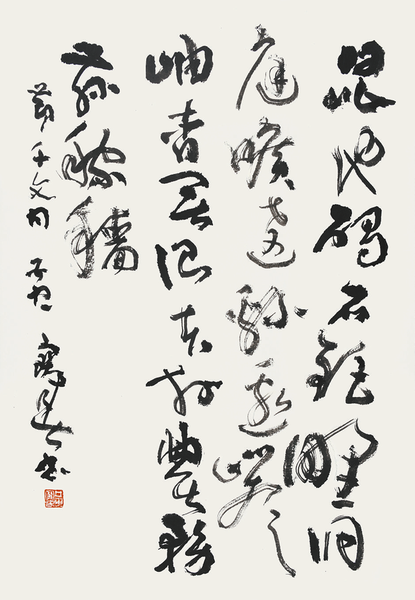 昆池碣石鉅野洞
庭曠遠綿邈巖
岫杳冥治本於農務
茲稼穡
節千文句